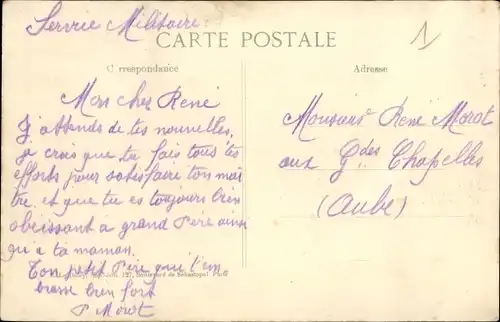 Service Militaire
1
CARTE POSTALE
Correspondance
Adresse
Mon cher René
J'attends de tes nouvelles,
je crois que tu fais tous tes
efforts pour satisfaire ton maî
tre. et que tu es toujours bien
obeissant a grand Père ainsi
qu'a ta maman.
Ton petit Père qui t'em
brasse bien fort
P Morot
127, Boulevard de Sébastopol, Paris
Monsieur René Morot
aux Gdes Chapelles
(Aube)